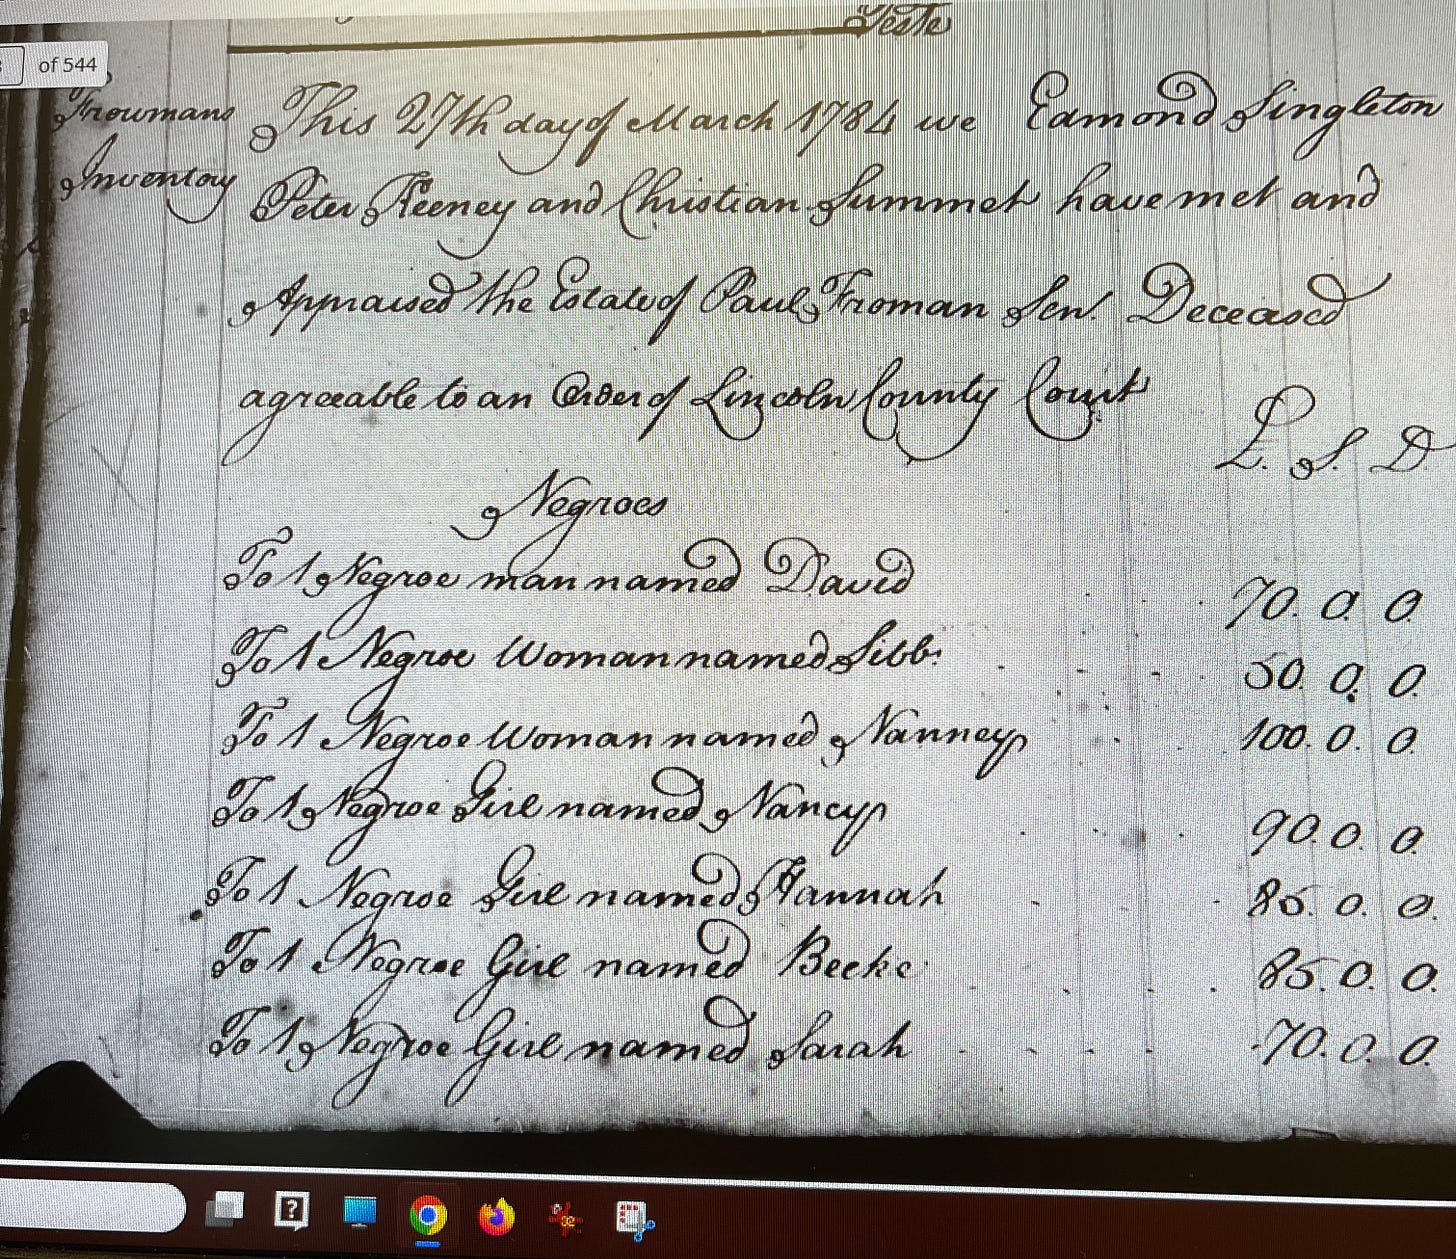 Teste
of 544
Frowmans
Inventory
This 27th day of March 1784 we Edmond Singleton
Peter Heeney and Christian Summet have met and
Appraised the Estate of Paul Froman Sen. Deceased
agreeable to an Order of Lincoln County Court
L. S. D
Negroes
To 1 Negroe man named David 70. 0. 0.
To 1 Negroe Woman named Sibb. 50. 0. 0.
To 1 Negroe Woman named Nanney 100. 0. 0.
To 1 Negroe Girl named Nancy 90. 0. 0.
To 1 Negroe Girl named Hannah 85. 0. 0.
To 1 Negroe Girl named Becke 85. 0. 0.
To 1 Negroe Girl named Sarah 70. 0. 0.